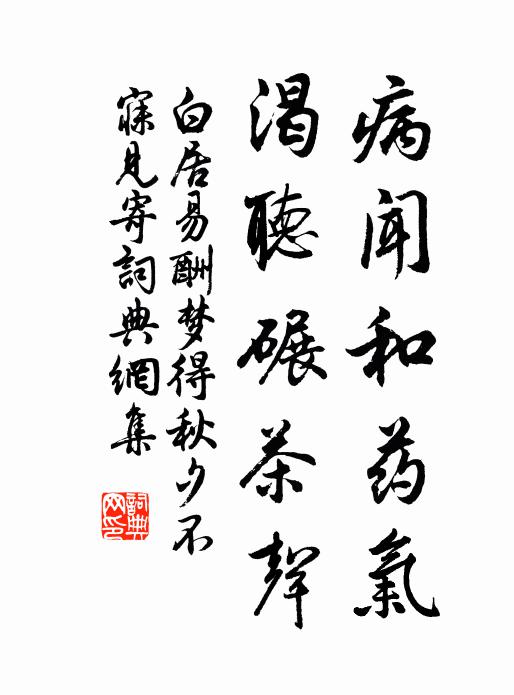 病聞和药氣
渴聽碾茶聲
白居易酬梦得秋夕不
寐見寄詞典網集
詞典
网印